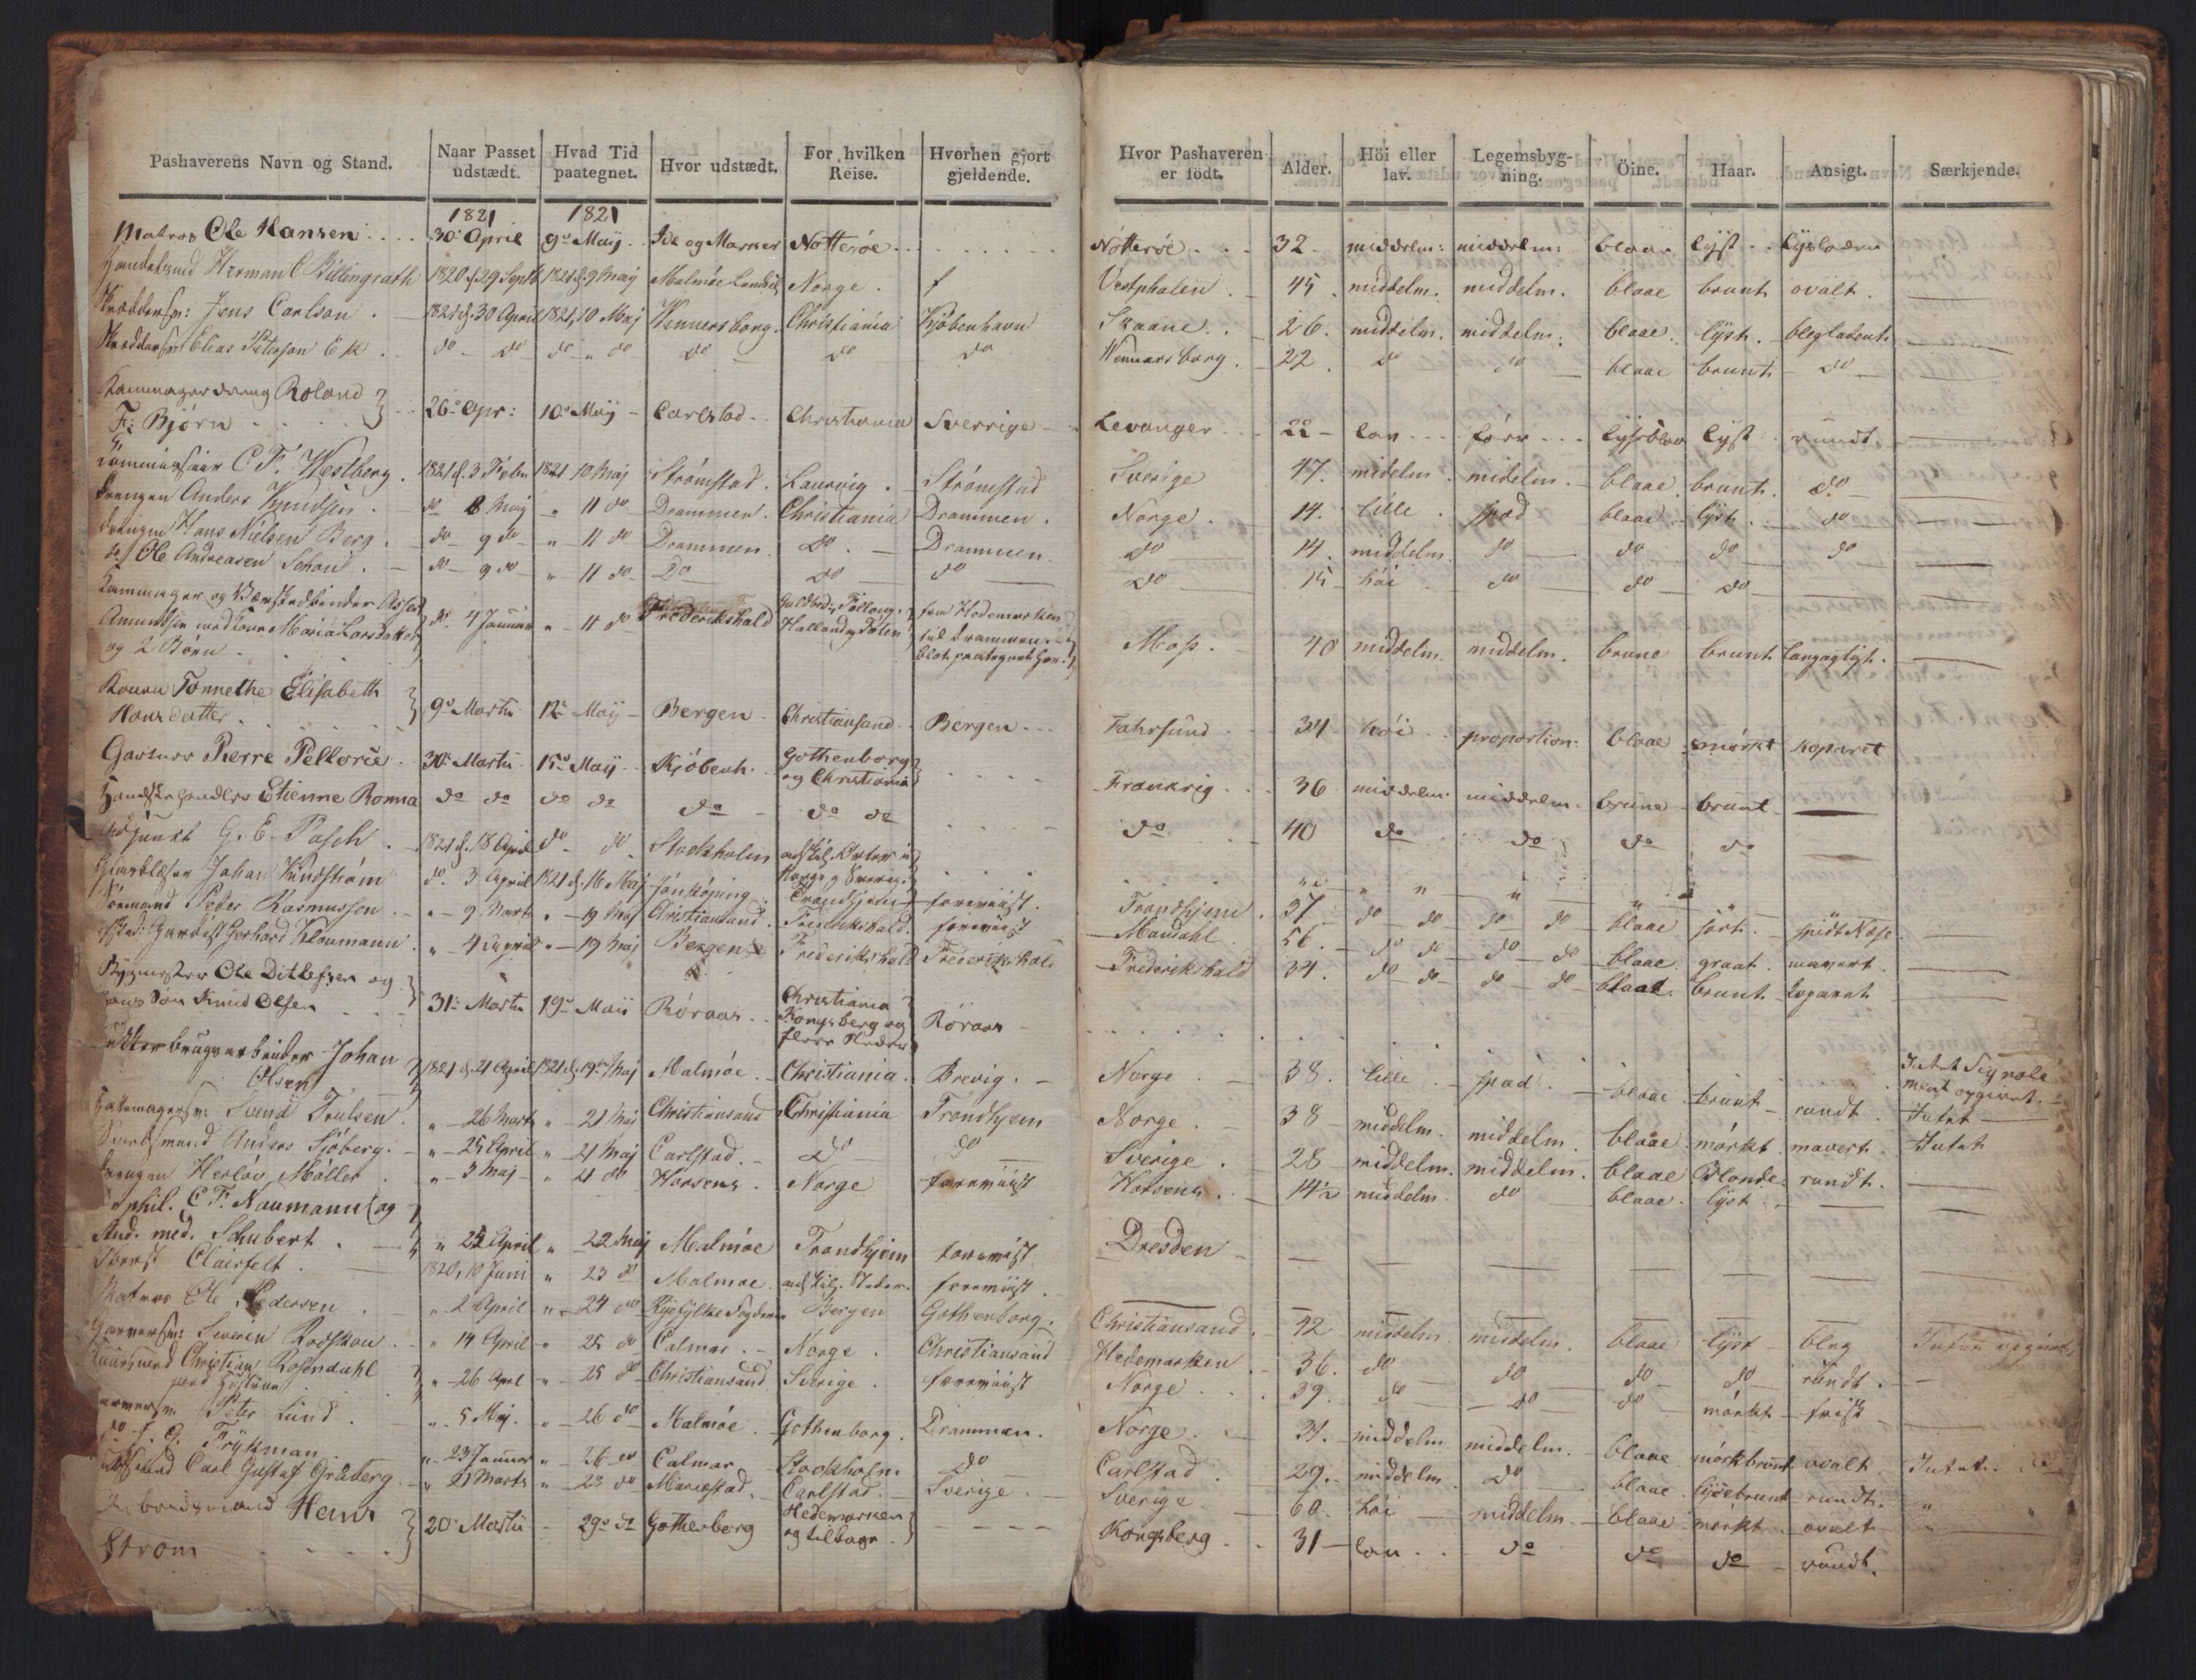 Pashaverens Navn og Stand. Naar Passet udstædt. Hvad Tid paategnet. Hvor udstædt. For hvilken Reise. Hvorhen gjort gjeldende.
1821 1821
Matros Ole Hansen 30 April 9 Maij Ide og Marker Nøtterøe
Herman C Billingrath 1820 d. 29 Septb 1821 d. 9 Maij Malmöe Norge
Jens Carlson 1821 d. 30 April 1821, 10 Maj Wennersborg Christiania Kjöbenhavn
Elias Peterson Ek do do do " do do do do
Kammagerdreng Roland
F: Bjørn 26 Apr: 10 Maij Carlstad Christiania Sverrige
C. F. Westberg 1821 d. 3 Febr 1821 10 Maj Strömstad Laurvig Strömstad
Drengen Anders Knudsen do 8 Maj " 11 do Drammen Christiania Drammen
Drengen Hans Nielsen Berg do 9 do " 11 do Drammen do Drammen
Ole Andreasen Schou do 9 do " 11 do Do do do
Kammager og
Amundsen med Kone Maria Larsdatter do 4 Januar " 11 do Frederikshald
og 2 Børn til Drammen
Konen Tonnethe Elisabeth
Hansdatter 9 Martii 12 Maij Bergen Christiansand Bergen
Pierre Pellorie 30 Martii 15 Maij Kjöbenh. Gothenborg og Christiania
Etienne Ronna do do do do do do do
Adjunkt G. E. Pasch 1821 d. 18 April do do Stockholm Norge og Sverig
Johan Kindström do 3 April 1821 d. 16 Maj Jönköping Trondhjem foreviist
Peder Rasmussen " 9 Marts " 19 Maj Christiansand Frederikshald foreviist
Gerhard Kloumann " 4 April " 19 Maj Bergen Frederikshald Frederikshald
Ole Ditlefsen og
hans Søn Knud Olsen 31 Martii 19 Maii Röraas Christiania Kongsberg og flere Steder Röraas
Johan
Olsen 1821 d. 21 April 1821 d. 19 Maj Malmöe Christiania Brevig
Svend Trulsen " 26 Marts " 21 Maj Christiansand Christiania Trondhjem
Anders Sjöberg " 25 April " 21 Maj Carlstad do do
Drengen Herlöv Möller " 3 Maj " 21 do Horsens Norge foreviist
phil. C. F. Naumann og
Stud. med. Schubert " 22 April " 22 Maj Malmöe Trondhjem foreviist
Clairfelt 1820, 10 Juni " 23 do Malmöe foreviist
Matros Ole Pedersen " 2 April " 24 do Bergen Gothenborg
Severin Rodskou " 14 April " 25 do Calmar Norge Christiansand
Christian Rosendahl
" 26 April " 25 do Christiansand Sverige foreviist
Peter Lund " 5 Maj " 26 do Malmöe Gothenborg Drammen
do Frykman " 23 Januar " 26 do Calmar Stockholm do
Carl Gustaf Gruberg " 21 Marts " 23 do Mariestad Carlstad Sverige
Hans
Strøm 20 Martii 29 dt Gotherborg Hedemarken og tilbage
Hvor Pashaveren er födt. Alder. Höi eller lav. Legemsbygning. Öine. Haar. Ansigt. Særkjende.
Nötteröe 32 middelm: middelm: blaae lyst
Vestphalen 45 middelm. middelm. blaae brunt ovalt
Skaane 26 middelm. middelm. blaae lyst
Wennersborg 22 do do blaae brunt do
Levanger 22 lav förr lyseblaa lyst rundt
Sverige 47 midelm. midelm. blaae brunt do
Norge 14 lille spæd blaae lyst do
do 14 middelm do do do do
do 15 höi do do do
Moss 40 middelm. middelm. brune brunt langagtigt
Fahrsund 34 höi proportion: blaae mörkt koparret
Frankrig 36 middelm. middelm. brune brunt
do 40 do do do do
" " "
Trondhjem 37 do do do do blaae sort spids Næse
Mandahl 56 do do do do blaae graat mavert
Frederikshald 34 do do do do blaae brunt koparret
Intet Signalement opgivet
Norge 38 lille spæd blaae brunt rundt Intet
Norge 38 middelm. middelm. blaae mörkt mavert Intet
Sverige 28 middelm. middelm. blaae Blonde rundt
Horsens 14½ middelm. do blaae lyst
Dresden
Christiansand 42 middelm. middelm. blaae lyst bleg Intet opgivet
Hedemarken 36 do do do do rundt
Norge 39 do do do mörkt frisk
Norge 31 middelm middelm. blaae mörkbrunt ovalt Intet
Carlstad 29 middelm do blaae lysebrunt rundt "
Sverige 60 höi middelm. blaae mörkt ovalt "
Kongsberg 31 lav do do do rundt